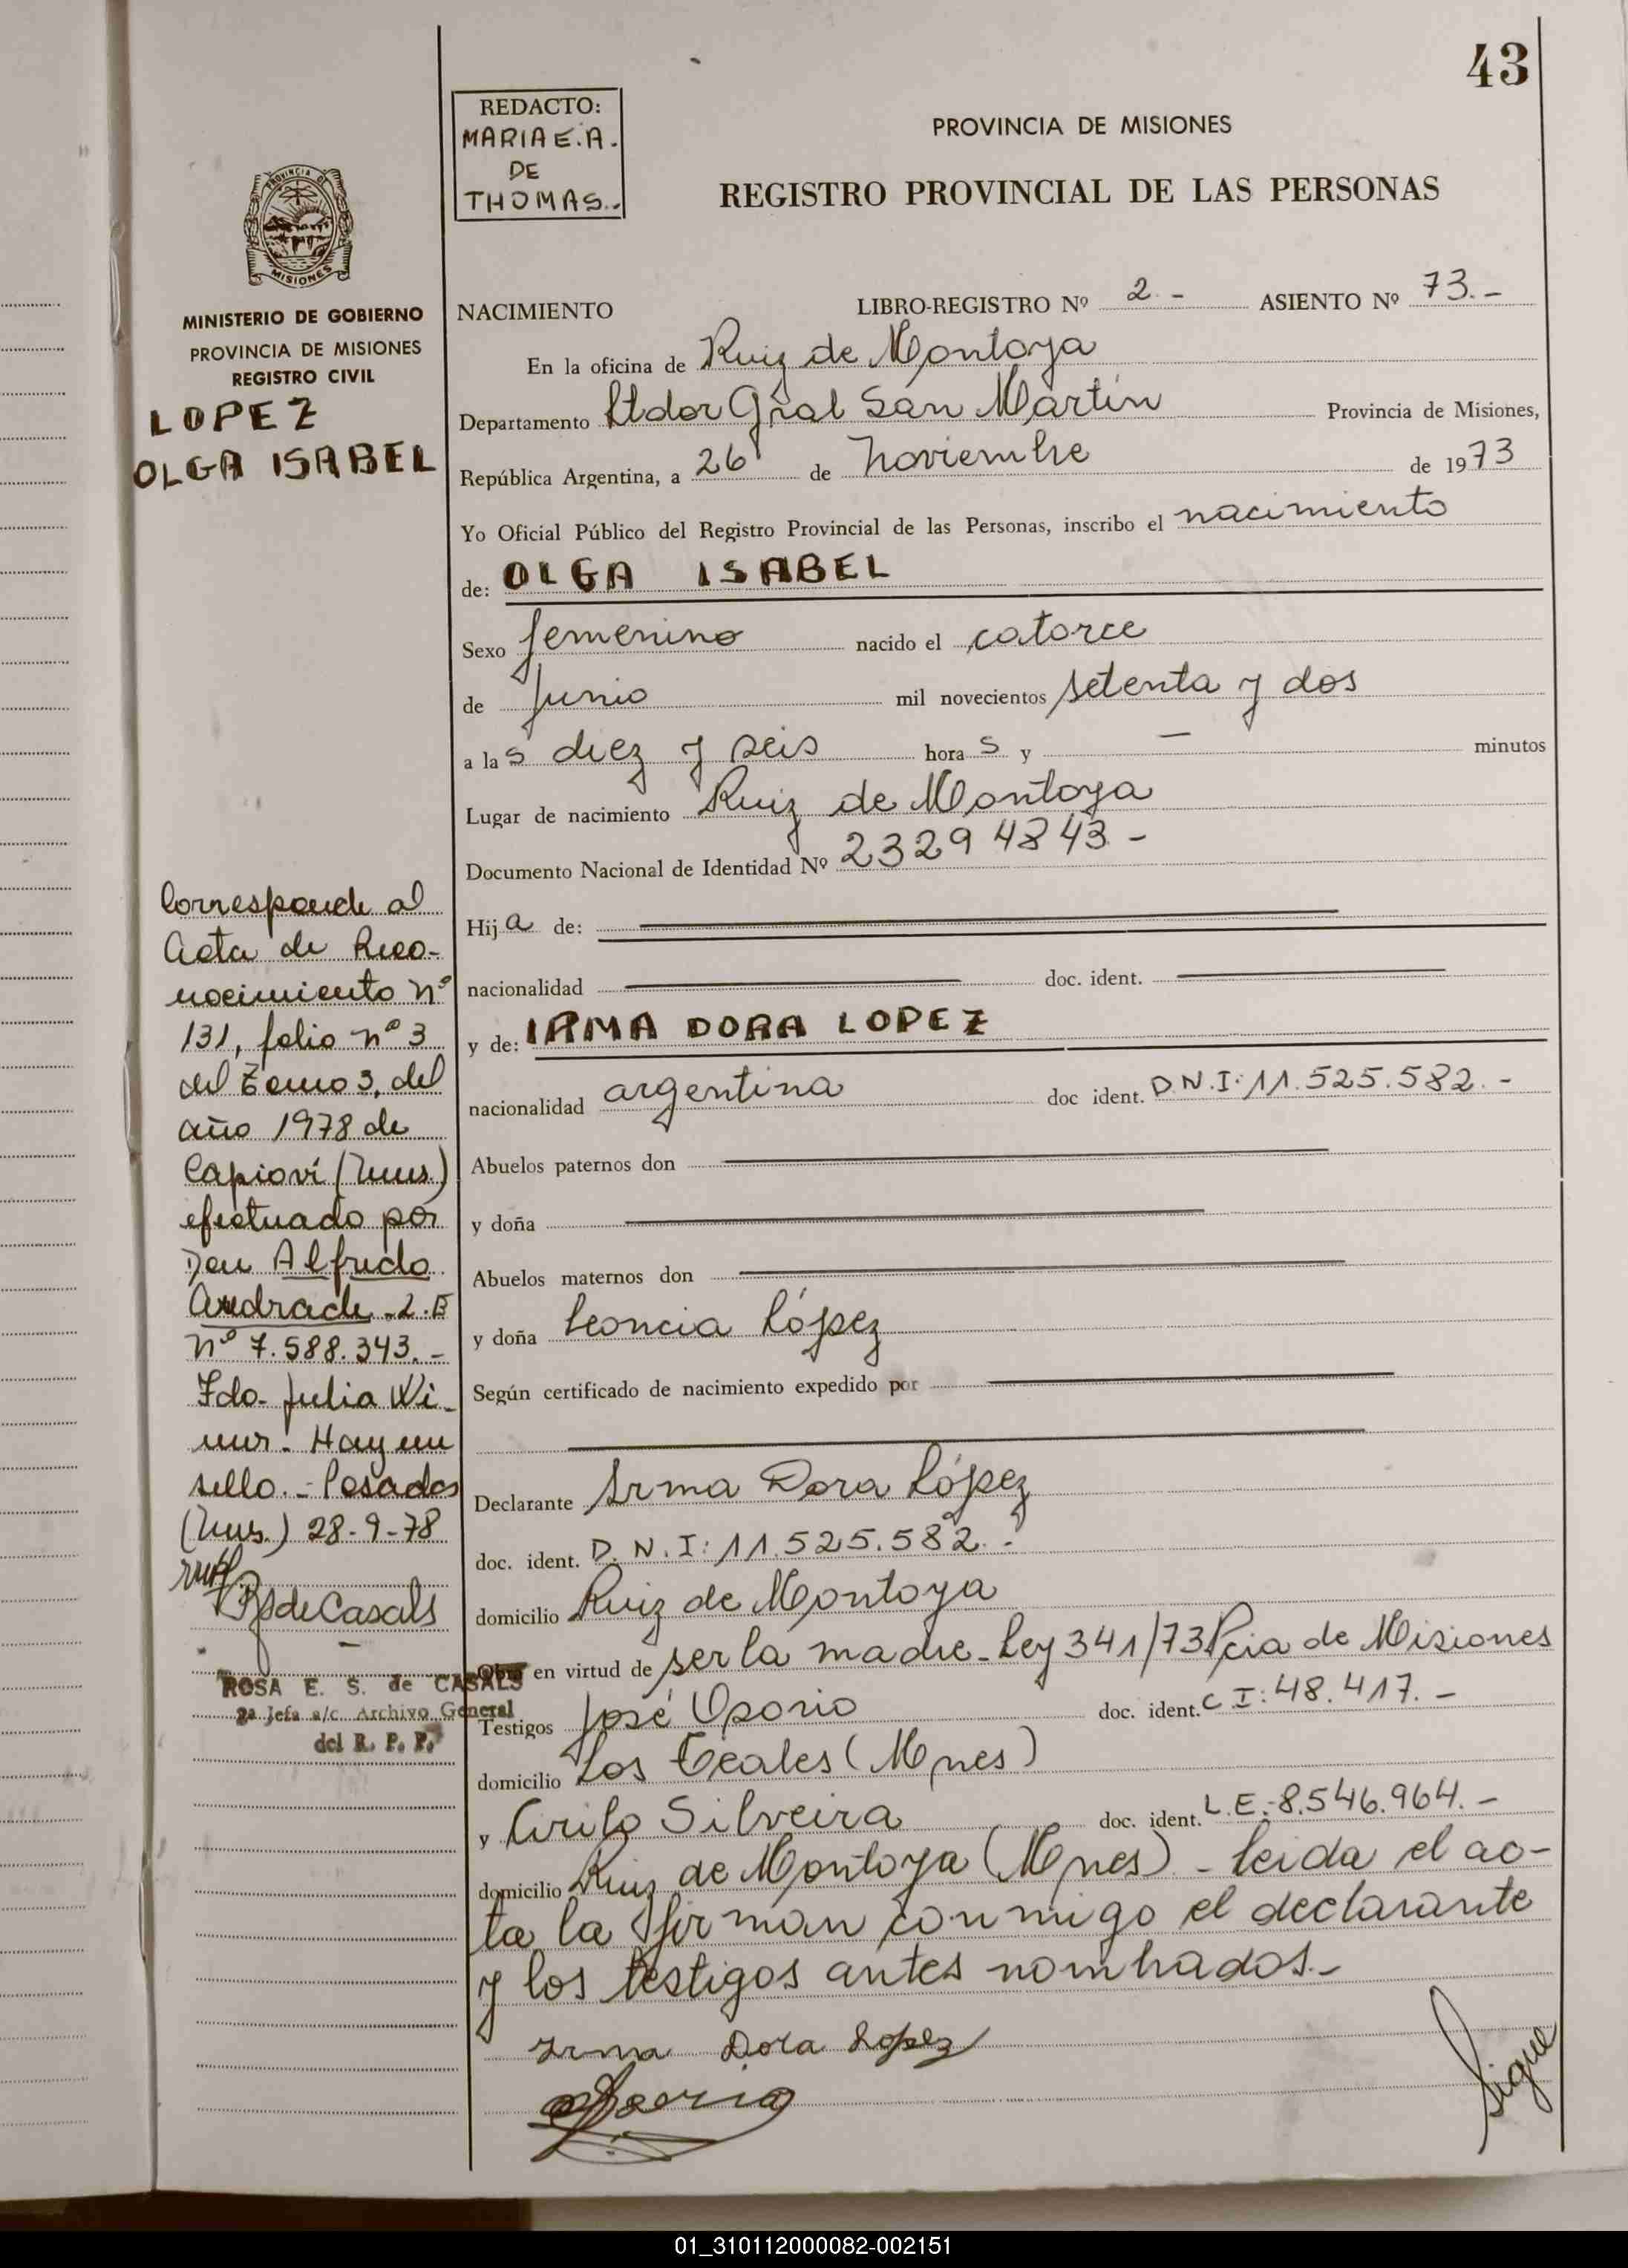 43
REDACTO:
MARIA E. A.
DE
THOMAS.-
PROVINCIA DE MISIONES
REGISTRO PROVINCIAL DE LAS PERSONAS
PROVINCIA DE
MISIONES
MINISTERIO DE GOBIERNO
PROVINCIA DE MISIONES
REGISTRO CIVIL
LOPEZ
OLGA ISABEL
NACIMIENTO LIBRO-REGISTRO Nº 2.- ASIENTO Nº 73.-
En la oficina de Ruiz de Montoya
Departamento Ltdor Gral San Martín Provincia de Misiones,
República Argentina, a 26 de noviembre de 1973
Yo Oficial Público del Registro Provincial de las Personas, inscribo el nacimiento
de: OLGA ISABEL
Sexo femenino nacido el catorce
de Junio mil novecientos setenta y dos
a las diez y seis horas y — minutos
Lugar de nacimiento Ruiz de Montoya
Documento Nacional de Identidad Nº 23294843.-
Hija de:
nacionalidad doc. ident.
y de: IRMA DORA LOPEZ
nacionalidad argentina doc ident. D.N.I: 11.525.582.-
Abuelos paternos don
y doña
Abuelos maternos don
y doña Leoncia López
Según certificado de nacimiento expedido por
Declarante Irma Dora López
doc. ident. D.N.I: 11.525.582.-
domicilio Ruiz de Montoya
Obra en virtud de ser la madre-Ley 341/73 Pcia de Misiones
Testigos José Osorio doc. ident. C I: 48.417.-
domicilio Los Teales (Mnes)
y Cirilo Silveira doc. ident. L.E.-8.546.964.-
domicilio Ruiz de Montoya (Mnes)- Leida el ac-
ta la firman conmigo el declarante
y los testigos antes nombrados.-
Irma Dora Lopez
Sigue
Corresponde al
Acta de Reco-
nocimiento nº
131, folio nº 3
del Tomo 3, del
año 1978 de
Capioví (Mns.)
efectuado por
Don Alfredo
Andrade-L.E
nº 7.588.343.-
Fdo- Julia Wi-
mer. Hay un
sello.- Posadas
(Mns.) 28-9-78
RSdeCasals
ROSA E. S. de CASALS
2ª Jefa a/c. Archivo General
del R. P. P.
01_310112000082-002151